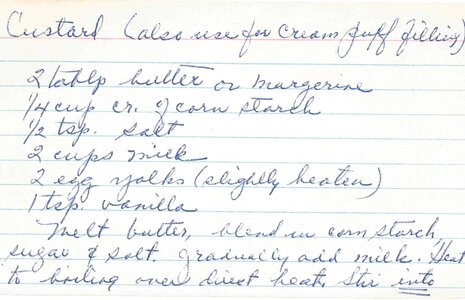 Custard (also use for Cream Puff Filling)
2 tablp butter or margerine
1/4 cup cr. of corn starch
1/2 tsp. salt
2 cups milk
2 egg yolks (slightly beaten)
1 tsp. vanilla
Melt butter, blend in corn starch,
sugar & salt. gradually add milk. Heat
to boiling over direct heat, Stir into